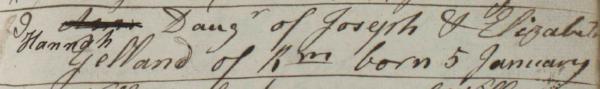 Hannah Daugr of Joseph & Elizabeth
Gelland of Km born 5 January